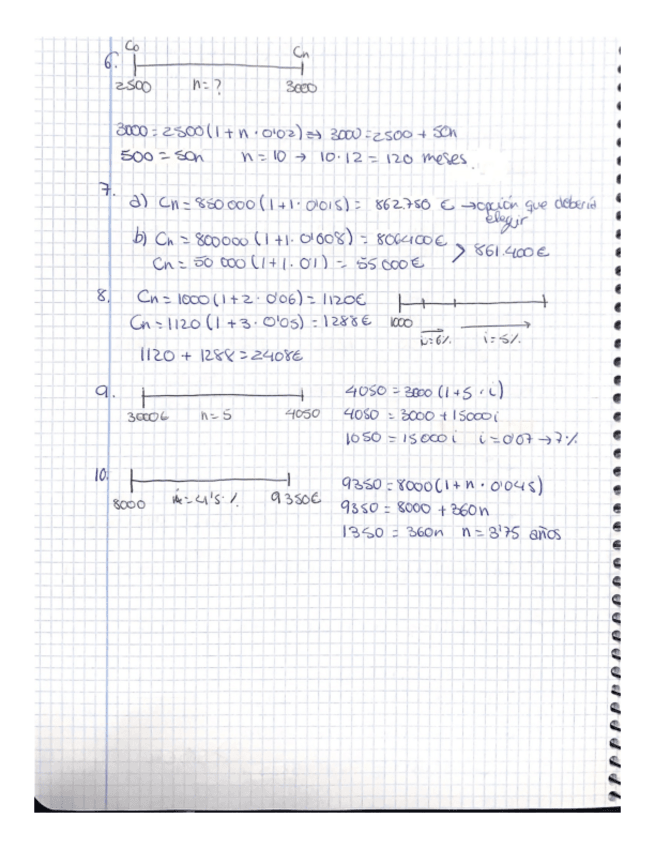 6. Co Cn
2500 n=? 3000
3000 = 2500 (1 + n · 0'02) ⇒ 3000 = 2500 + 50n
500 = 50n n = 10 → 10 · 12 = 120 meses.
7.
a) Cn = 850 000 (1+1 · 0'015) = 862.750 € → opción que debería
elegir
b) Cn = 800000 (1+1 · 0'008) = 806400€ > 861.400€
Cn = 50 000 (1+1 · 01) = 55 000€
8. Cn = 1000 (1+2 · 0'06) = 1120€
Cn = 1120 (1+3 · 0'05) = 1288€ 1000 i=6% i=5%
1120 + 1288 = 2408€
9. 4050 = 3000 (1+5 · i)
3000€ n=5 4050 4050 = 3000 + 15000i
1050 = 15000i i = 0'07 → 7%
10. 9350 = 8000 (1+n · 0'045)
8000 i=4'5% 9350€ 9350 = 8000 + 360n
1350 = 360n n = 3'75 años